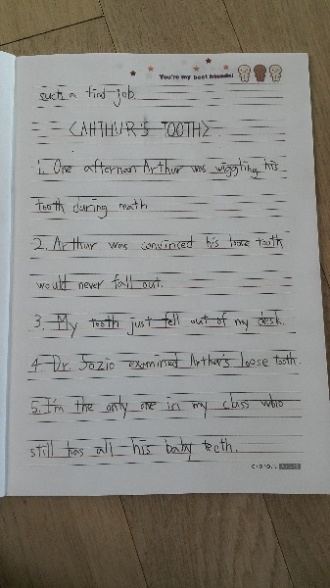 You're my best friends!
such a tind job.
<AHTHUR'S TOOTH>
1. One afternoon Arthur was wiggling his
tooth during math
2. Arthur was convinced his loose tooth
would never fall out.
3. My tooth just fell out of my desk.
4. Dr. Sozio examined Arthur's loose tooth.
5. I'm the only one in my class who
still has all his baby teeth.